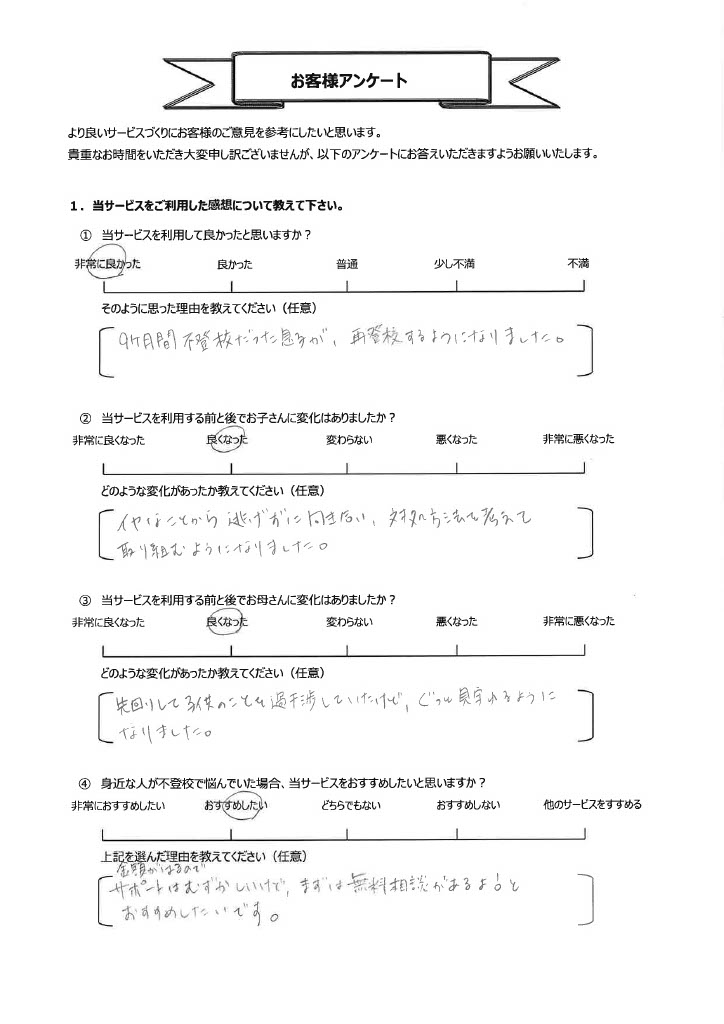 お客様アンケート
より良いサービスづくりにお客様のご意見を参考にしたいと思います。
貴重なお時間をいただき大変申し訳ございませんが、以下のアンケートにお答えいただきますようお願いいたします。
１．当サービスをご利用した感想について教えて下さい。
① 当サービスを利用して良かったと思いますか？
非常に良かった 良かった 普通 少し不満 不満
そのように思った理由を教えてください（任意）
9ヶ月間不登校だった息子が、再登校するようになりました。
② 当サービスを利用する前と後でお子さんに変化はありましたか？
非常に良くなった 良くなった 変わらない 悪くなった 非常に悪くなった
どのような変化があったか教えてください（任意）
イヤなことから逃げずに向き合い、対処方法を考えて
取り組むようになりました。
③ 当サービスを利用する前と後でお母さんに変化はありましたか？
非常に良くなった 良くなった 変わらない 悪くなった 非常に悪くなった
どのような変化があったか教えてください（任意）
先回りして子供のことを過干渉していたけど、ぐっと見守れるように
なりました。
④ 身近な人が不登校で悩んでいた場合、当サービスをおすすめしたいと思いますか？
非常におすすめしたい おすすめしたい どちらでもない おすすめしない 他のサービスをすすめる
上記を選んだ理由を教えてください（任意）
金額がはるので
サポートはむずかしいけど、まずは無料相談があるよ！と
おすすめしたいです。